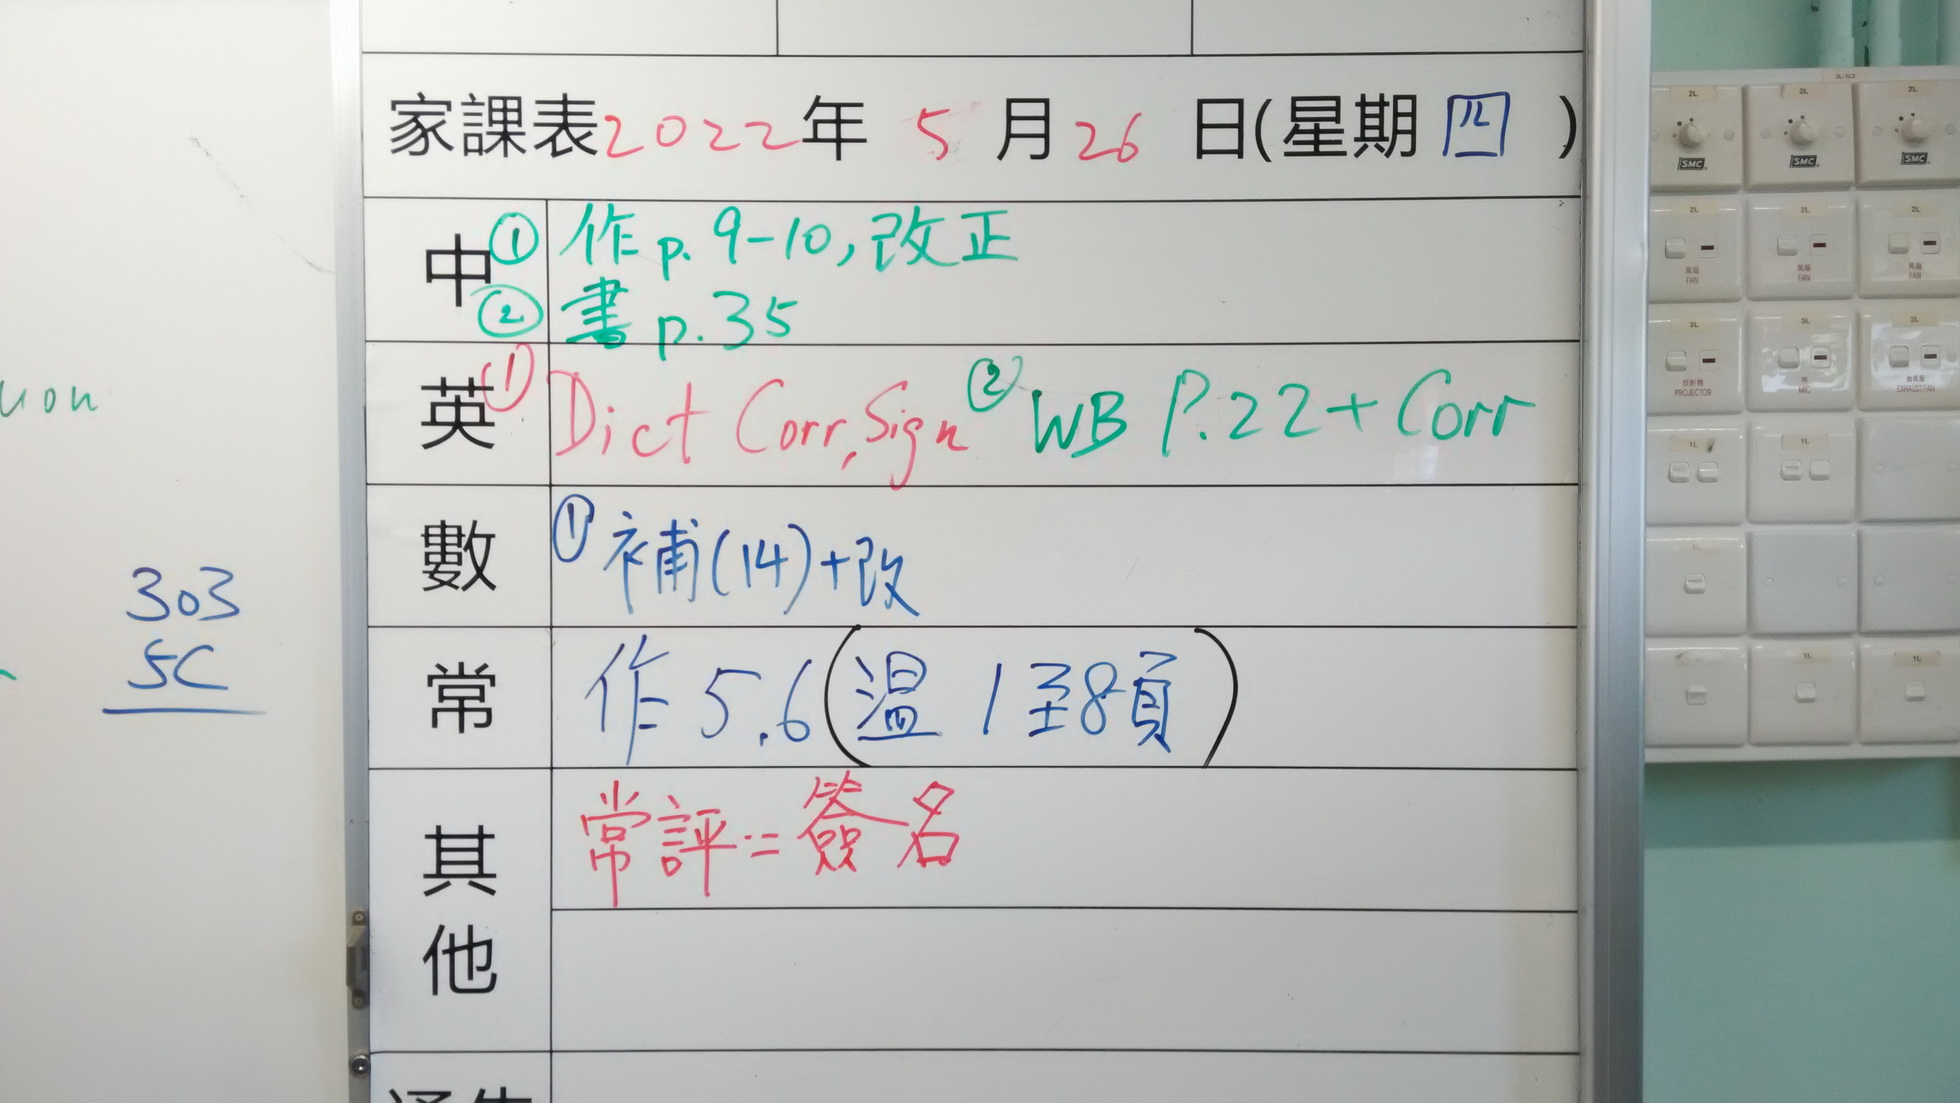 家課表2022年 5 月26 日(星期四 )
中 ① 作p.9-10,改正
② 書p.35
英 ① Dict Corr, Sign ② WB P.22+Corr
數 ① 補(14)+改
常 作5.6(溫 1至8頁)
其他 常評二簽名
303
5C
SMC
SMC
SMC
2L
2L
2L
2L
2L
2L
風扇
FAN
風扇
FAN
風扇
FAN
3L
3L
2L
投影機
PROJECTOR
MIC
抽氣扇
EXHAUST FAN
1L
1L
1L
1L
1L